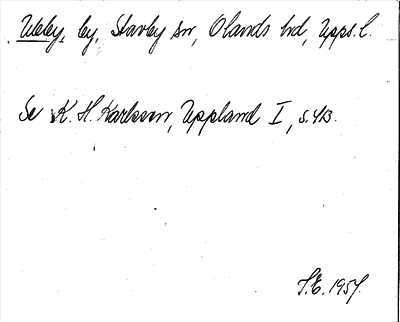 Ubby, by, Stavby sn, Olands hd, Upps. l.
Se K. H. Karlsson, Uppland I, s. 413.
S.E. 1957.